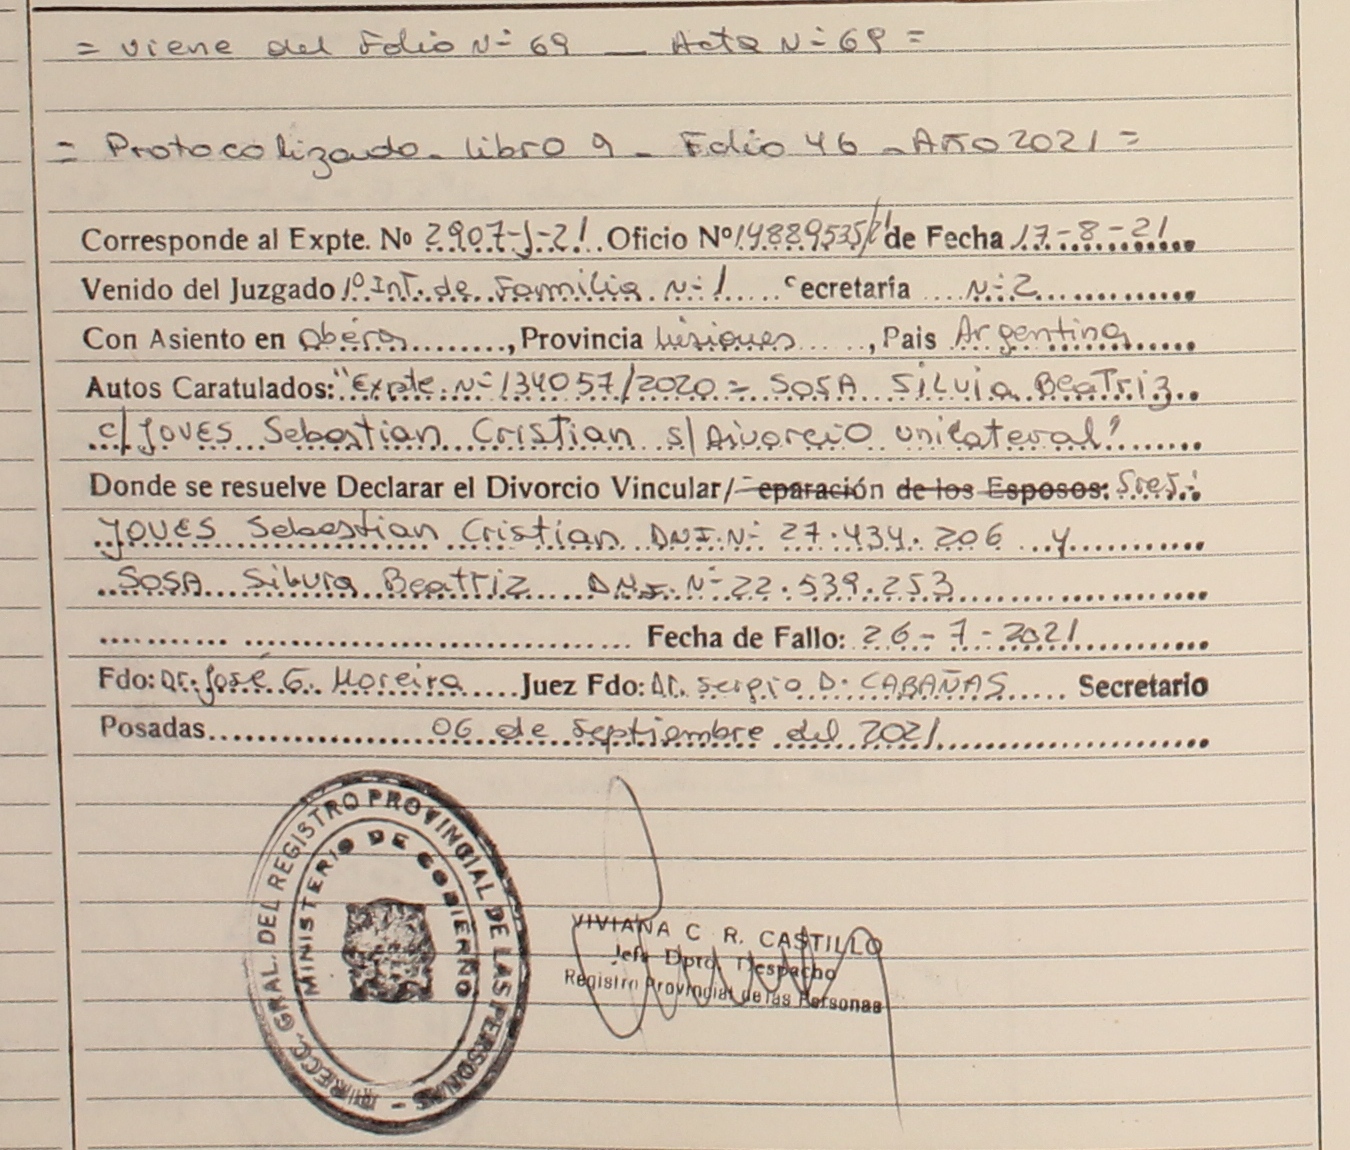 = viene del Folio N° 69 _ Acta N° 69 =
= Protocolizado - Libro 9 - Folio 46 - Año 2021 =
Corresponde al Expte. No 2907-J-21. Oficio Nº 14889535/21 de Fecha 17-8-21
Venido del Juzgado 1º Inst. de Familia N° 1 ecretaría N° 2
Con Asiento en Oberá, Provincia Misiones, Pais Argentina
Autos Caratulados: "Expte. N° 134057/2020 = SOSA Silvia Beatriz
c/ JOVES Sebastian Cristian s/ Divorcio unilateral"
Donde se resuelve Declarar el Divorcio Vincular/ eparación de los Esposos: Sres.:
JOVES Sebastian Cristian DNI. N° 27.434.206 y
SOSA Silvia Beatriz DNI. N° 22.539.253
Fecha de Fallo: 26-7-2021
Fdo: Dr. José G. Moreira Juez Fdo: Dr. Sergio D. CABAÑAS Secretario
Posadas 06 de Septiembre del 2021
DIRECC. GRAL. DEL REGISTRO PROVINCIAL DE LAS PERSONAS -
MINISTERIO DE GOBIERNO
VIVIANA C. R. CASTILLO
Jefe Dpto. Despacho
Registro Provincial de las Personas